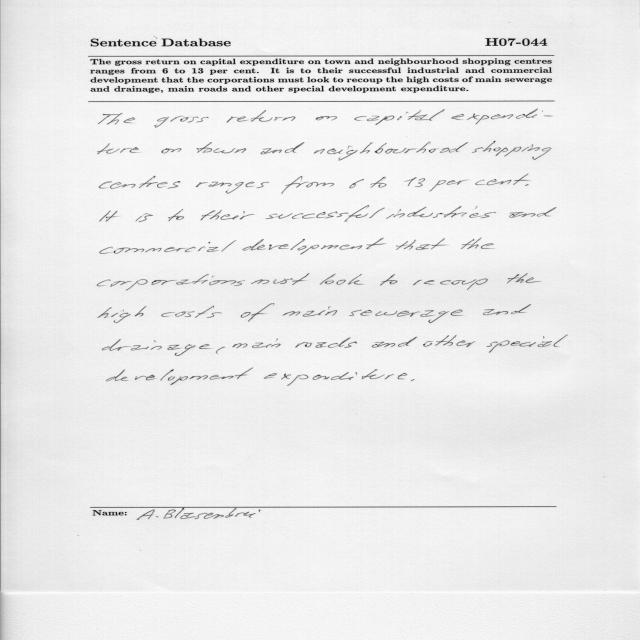 Sentence Database H07-044
The gross return on capital expenditure on town and neighbourhood shopping centres
ranges from 6 to 13 per cent. It is to their successful industrial and commercial
development that the corporations must look to recoup the high costs of main sewerage
and drainage, main roads and other special development expenditure.
The gross return on capital expendi-
ture on town and neighbourhood shopping
centres ranges from 6 to 13 per cent.
It is to their successful industries and
commercial development that the
corporations must look to recoup the
high costs of main sewerage and
drainage, main roads and other special
development expenditure.
Name: A.